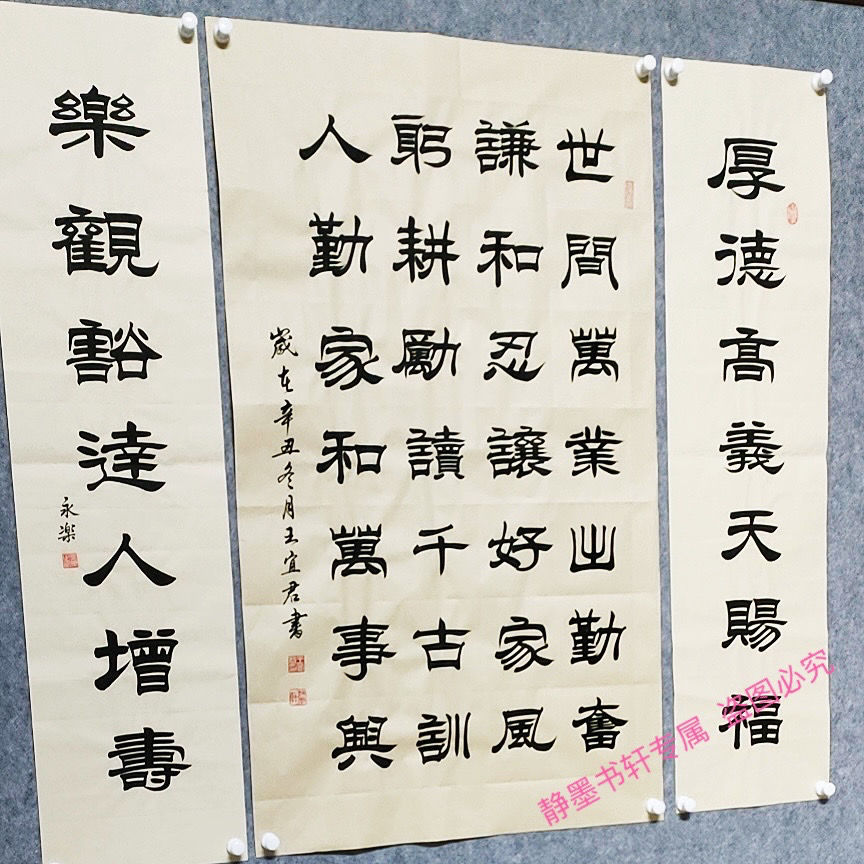 厚德高義天賜福
世間萬業出勤奮
謙和忍讓好家風
躬耕勵讀千古訓
人勤家和萬事興
歲在辛丑冬月王宜君書
樂觀豁達人增壽
永樂
静墨书轩专属 盗图必究